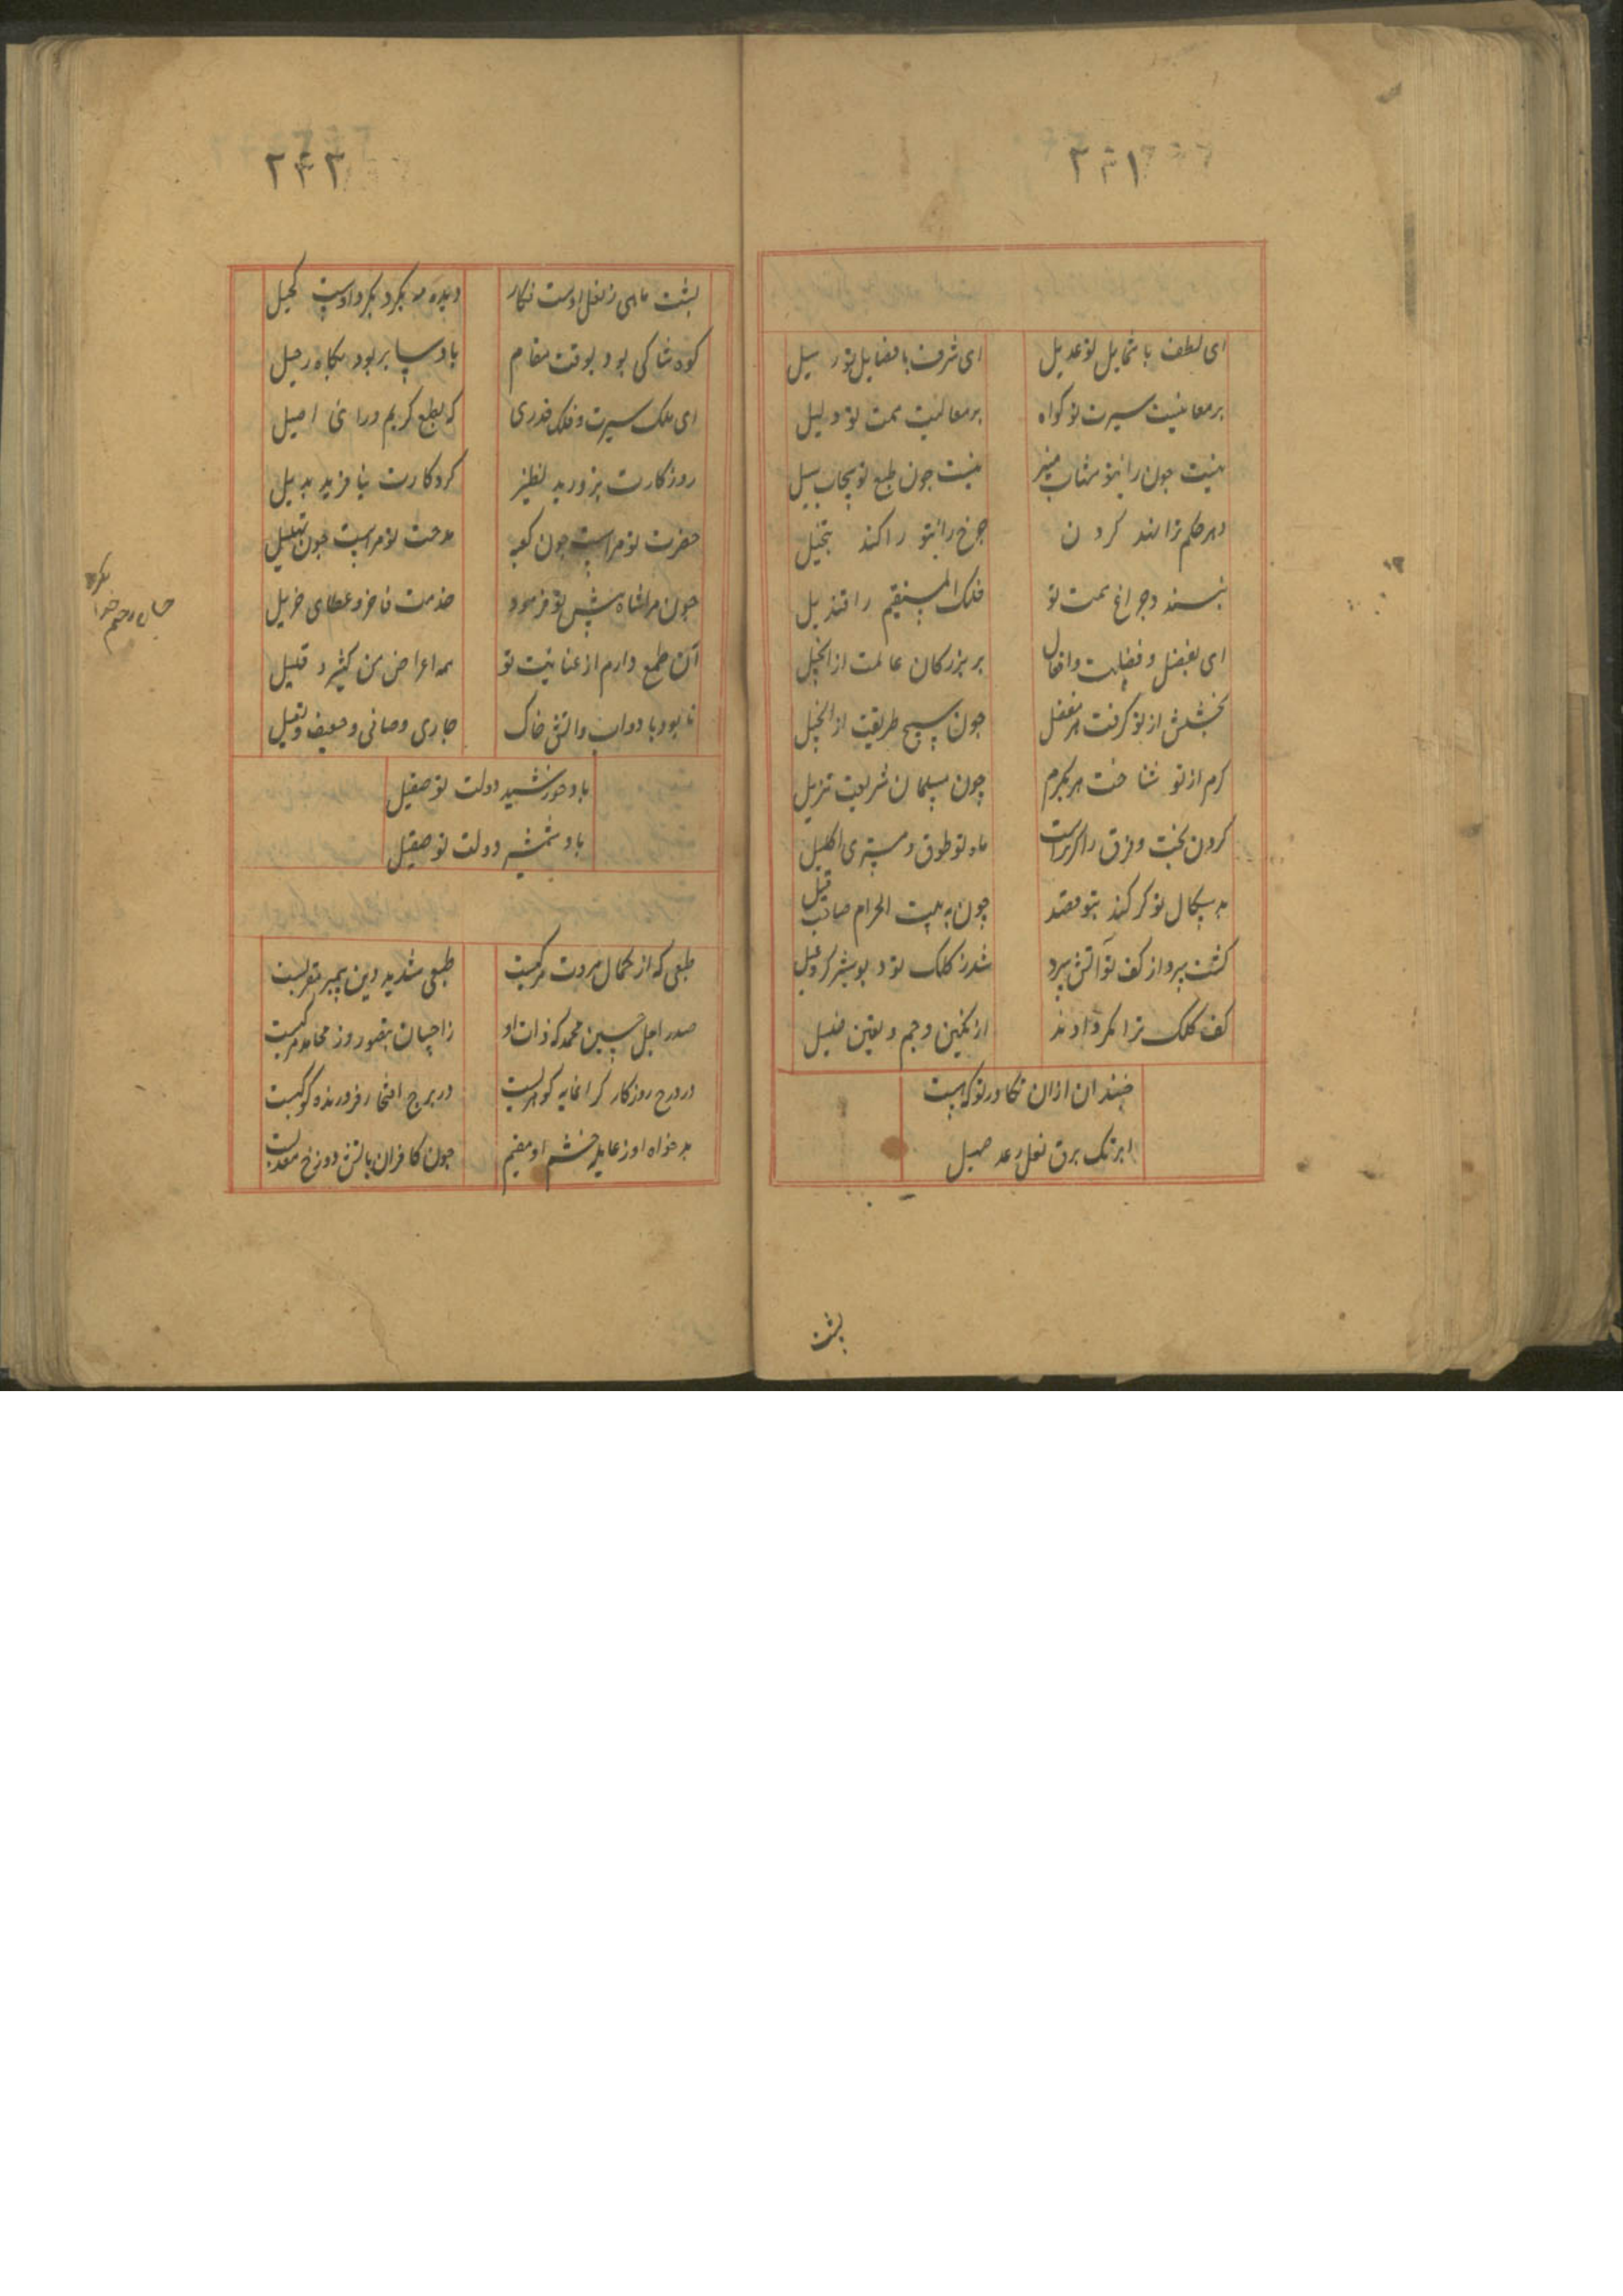 ۲۴۱
ای لطف با شمایل تو عدیل ای شرف با فضایل تو رسیل
بر معانیت سیرت تو کواه بر معالیت همت تو دلیل
نیست چون رای تو شهاب منیر نیست چون طبع تو سحاب سبیل
دهر حکم ترا نهد کردن چرخ رای تو را کند تبجیل
نپسندد چراغ همت تو فلک المستقیم را قندیل
ای بفضل و فضایل و افضال بر بزرکان عالمت
بخشش از تو کرفت هر مفضل چون مسیح طریقت از انجیل
کرم از تو شناخت هر مکرم چون مسلمان شریعت تنزیل
کردن بخت و فرق ماه نو طوق و مشتری اکلیل
بد سکال تو کر کند بتو قصد چون به بیت الحرام صاحب فیل
کشت پرواز کف تو آتش برد شد ز کلک تو
کف کلک ترا مکر دادند از نکین و جم و
چندان ازان تکاور تو که هست
ابر تک برق نعل رعد صهیل
پشت
۲۴۲
پشت ماهی ز نعل اوست نکار دیده مه بکرد کرد اوست کحیل
کوه شاکی بود بوقت مقام باد سیا بر بود بکاه رحیل
ای ملک سیرت و فلک قدری که بطبع کریم و رای اصیل
روزکارت نپرورید نظیر کردکارت نیافرید بدیل
حضرت تو مراست چون کعبه مدحت تو مراست چون تهلیل
چون مرا شاه پیش تو فرمود خدمت فاخر و عطای جزیل
آن طمع دارم از عنایت تو همه اعراض من کثیر و قلیل
تا بود باد و اب و اتش خاک جاری و صافی و ضعیف و ثقیل
باد خورشید دولت تو صقیل
باد شمشیر دولت تو صقیل
طبعی که از کمال مروت مرکبست طبعی شدید دین پیمبر مقربست
صدر اجل حسین محمد که ذات او
در درج روزکار کرانمایه کوهریست در برج افتخار فروزنده کوکبست
بدخواه او ز عایله خشم او مقیم چون کافران باتش دوزخ معذبست